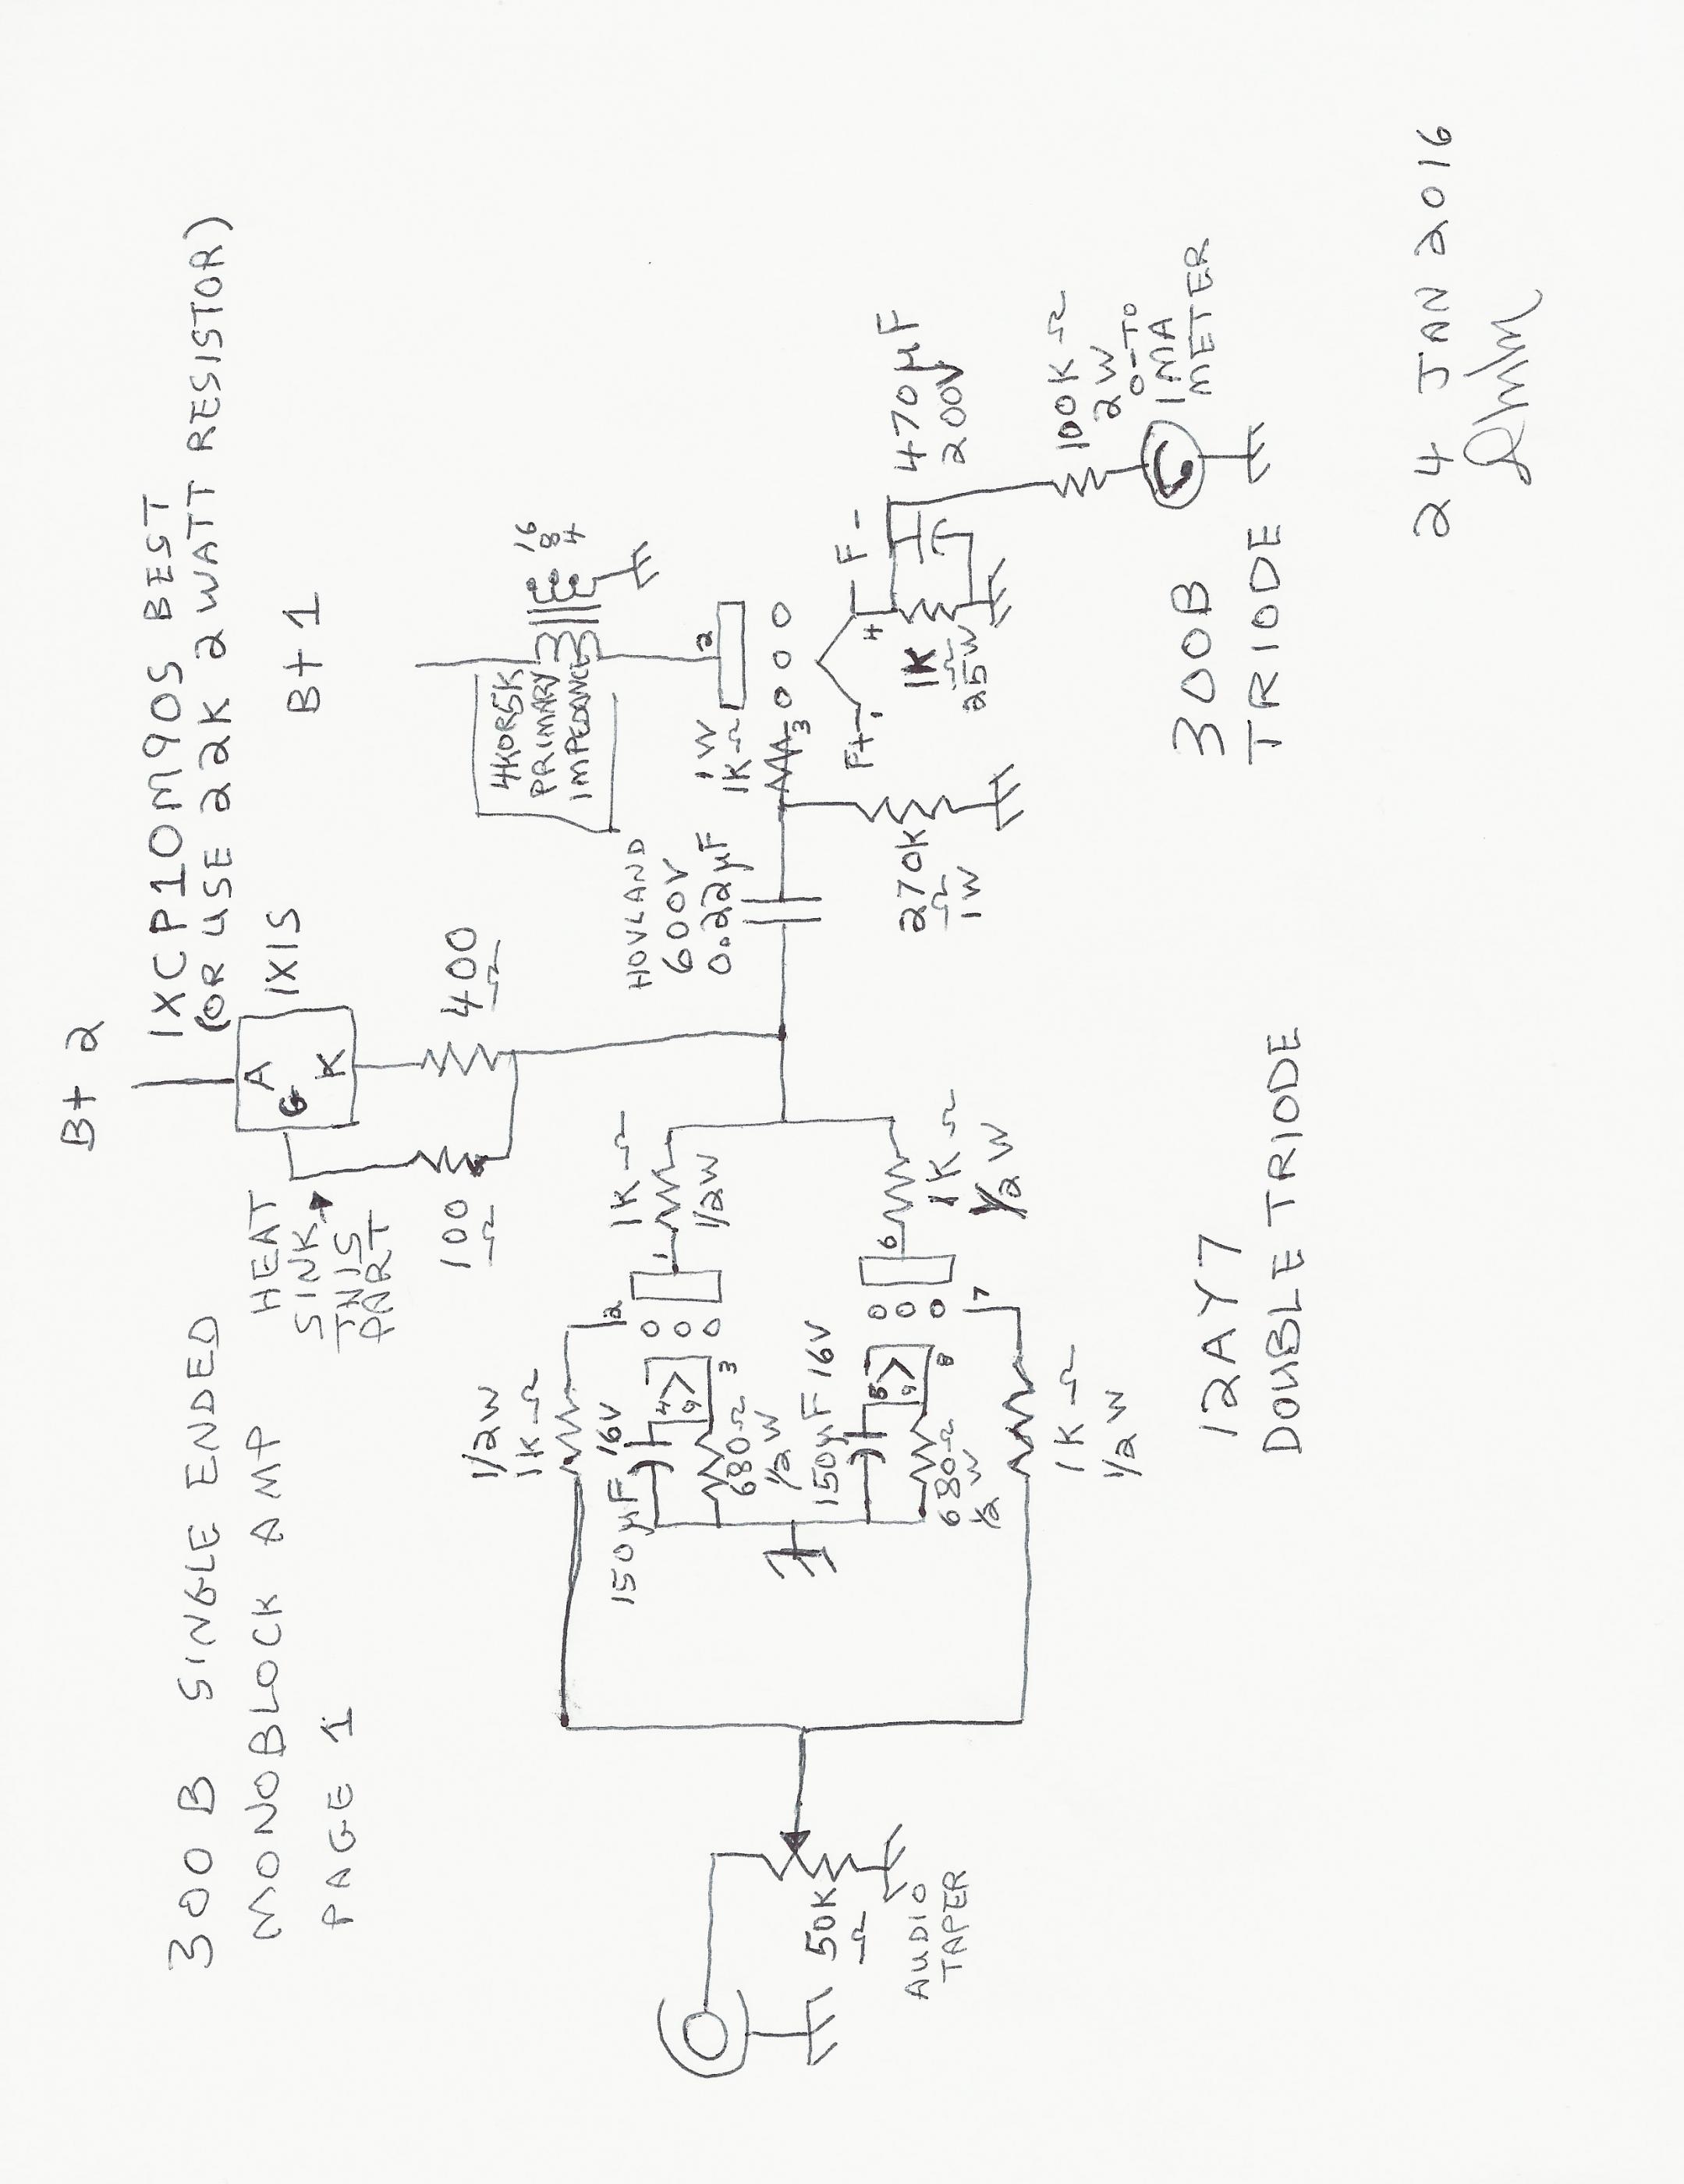 300B SINGLE ENDED
MONOBLOCK AMP
PAGE 1
B+2
IXCP10M90S BEST
(OR USE 22K 2 WATT RESISTOR)
IXIS
A
G
K
HEAT
SINK
THIS
PART
100
Ω
400
Ω
B+1
4K OR 5K
PRIMARY
IMPEDANCE
16
8
4
1/2W
1KΩ
2
1KΩ
1/2W
1
150µF
16V
4
9
3
680Ω
1/2W
150µF 16V
5
9
8
680Ω
1/2W
6
1KΩ
1/2W
7
1KΩ
1/2W
HOVLAND
600V
0.22µF
1W
1KΩ
3
2
270K
Ω
1W
F+
1
F-
4
1K
Ω
25W
470µF
200V
100KΩ
2W
0-TO
1MA
METER
50K
Ω
AUDIO
TAPER
12AY7
DOUBLE TRIODE
300B
TRIODE
24 JAN 2016